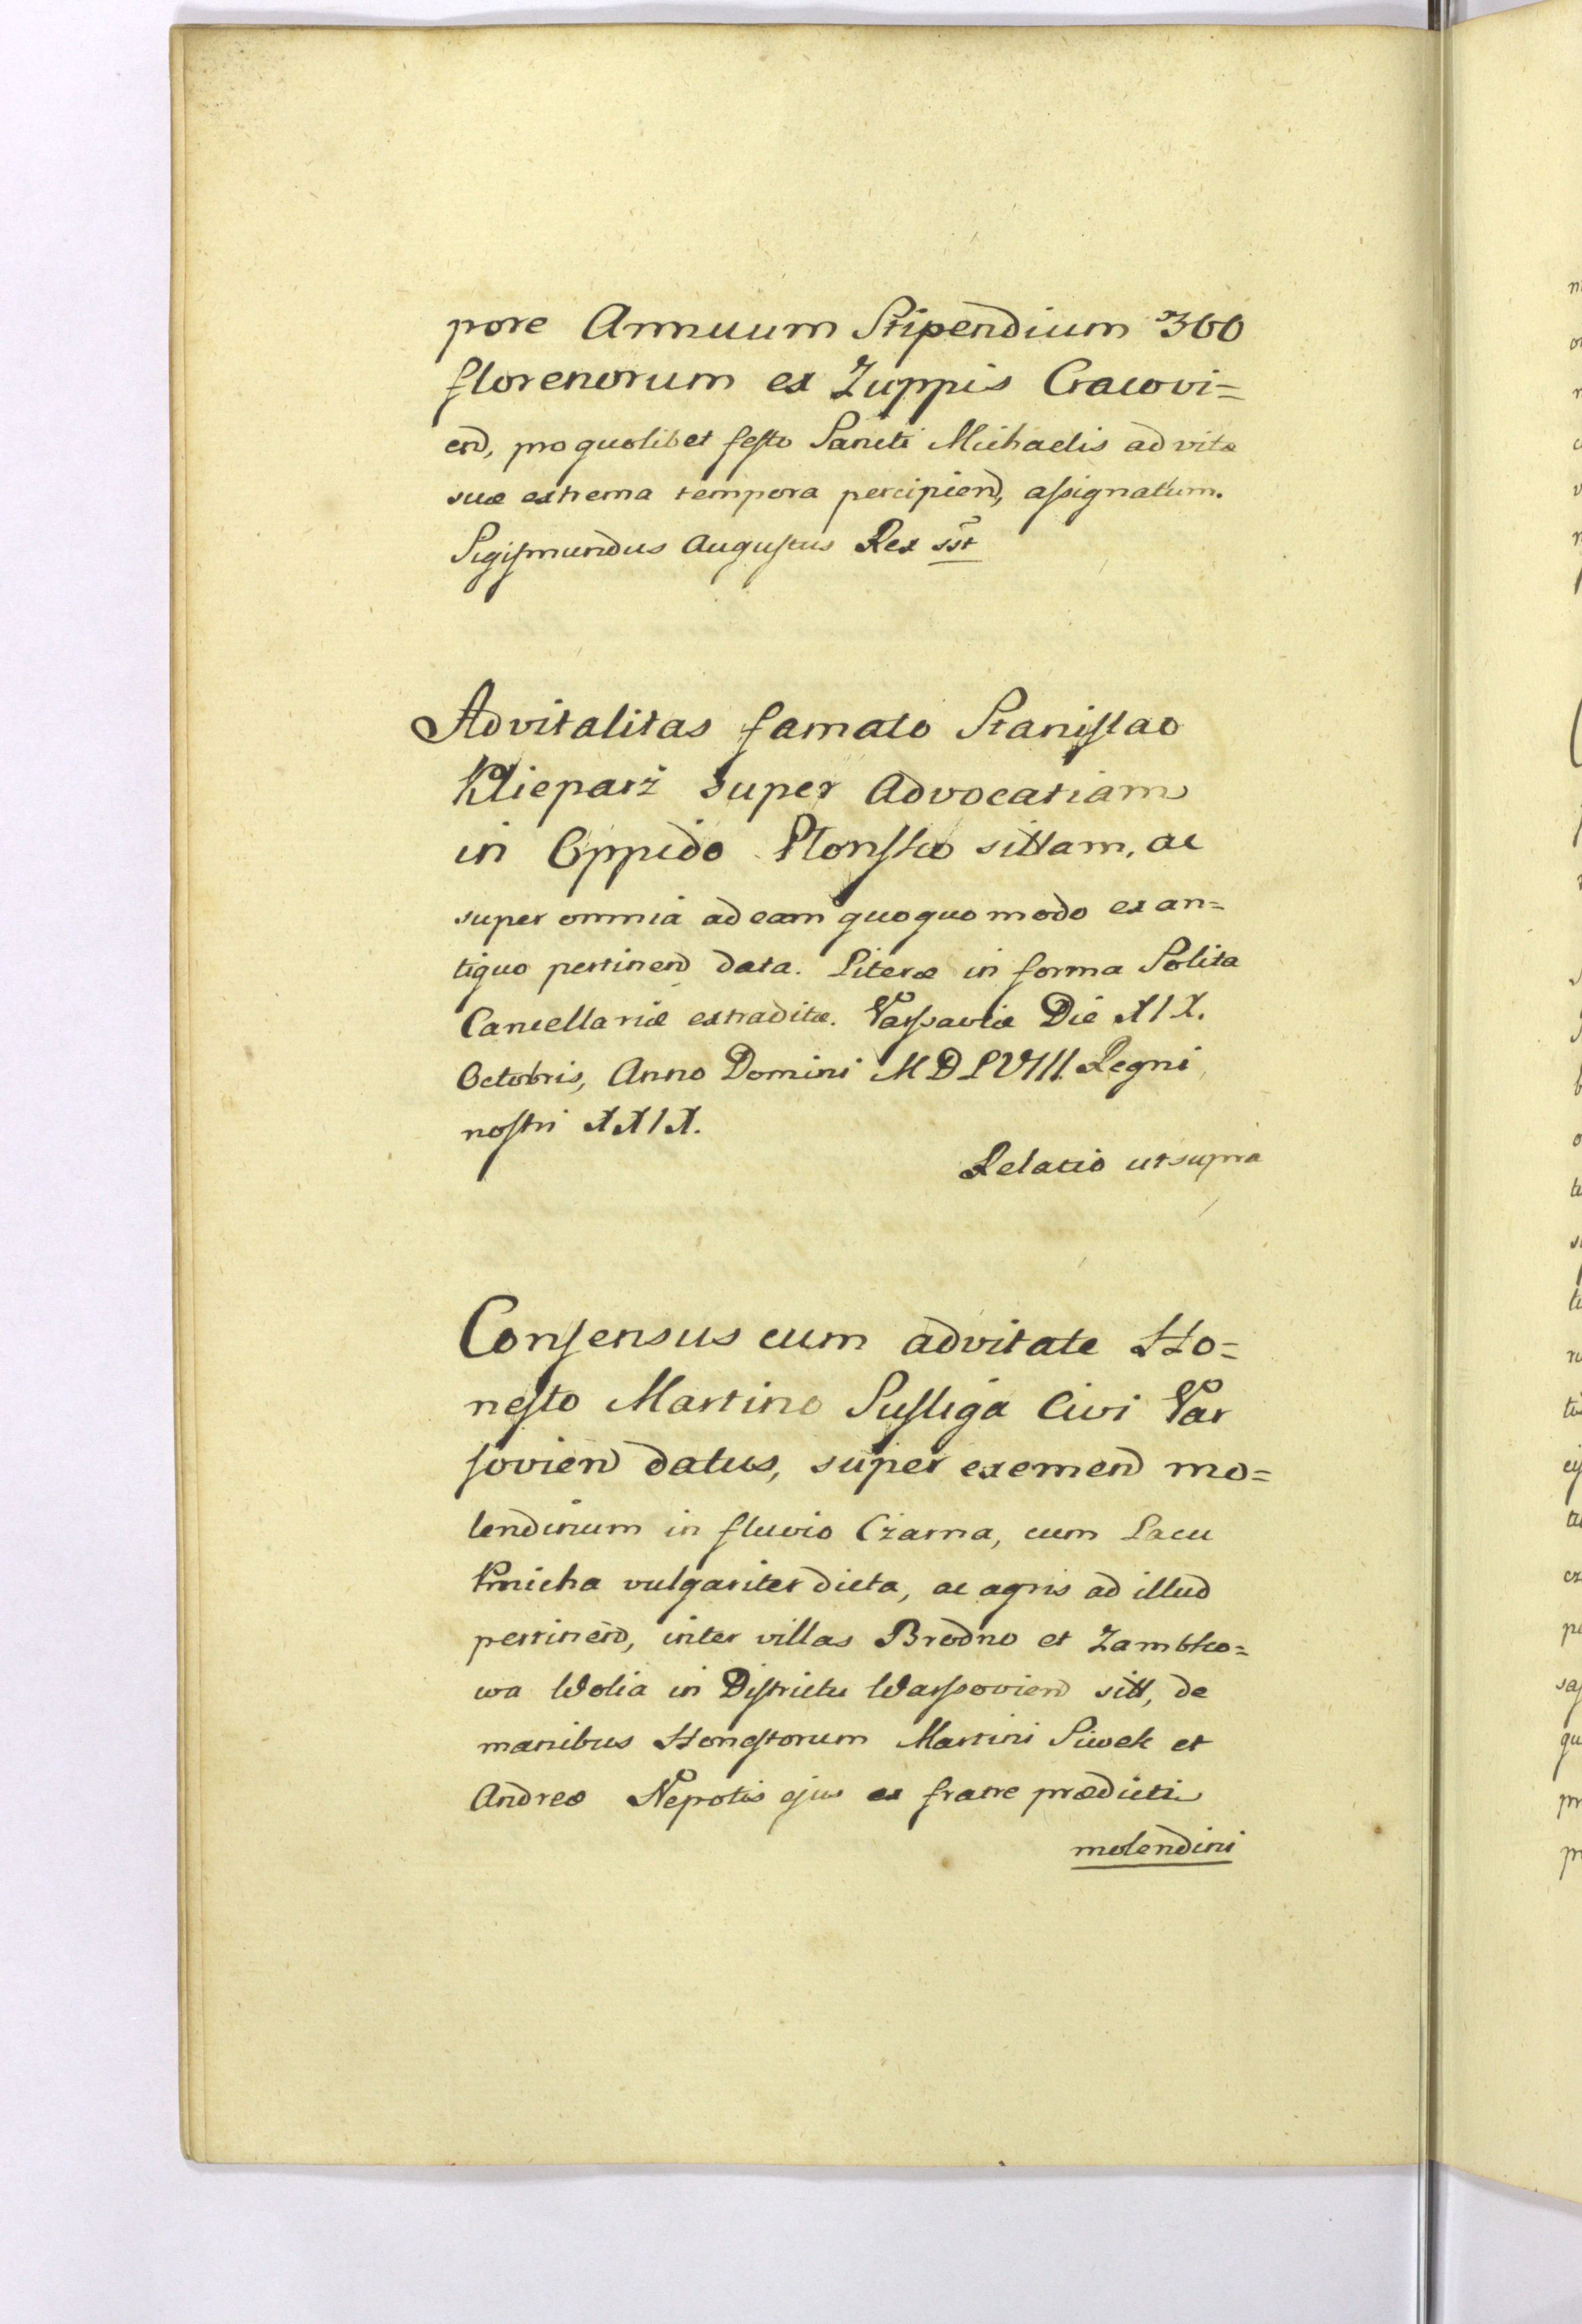 pore Annuum Stipendium 300
florenorum ex Zuppis Cracovi=
en̄d, pro quolibet festo Sancti Michaelis ad vitæ
suæ extrema tempora percipiend, assignatum.
Sigismundus Augustus Rex sst
Advitalitas famato Stanislao
Klieparz super Advocatiam
in Oppido Plonsko sittam, ac
super omnia ad eam quoquo modo ex an=
tiquo pertinend data. Literæ in forma Solita
Cancellariæ extraditæ. Varsaviæ Die XIX.
Octobris, Anno Domini MDLVIII. Regni
nostri XXIX.
Relatio ut supra
Consensus cum advitate Ho=
nesto Martino Susliga Civi Var
soviend datus, super exemend mo=
lendinum in fluvio Czarna, cum Lacu
Kmicha vulgariter dicta, ac agris ad illud
pertinend, inter villas Brodno et Zambko=
wa Wolia in Districtu Warsoviend sitt, de
manibus Honestorum Martini Siwek et
Andreæ Nepotis ejus ex fratre prædicti
molendini